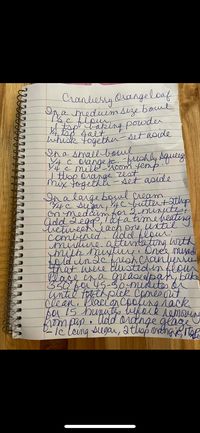 Cranberry Orange loaf
In a medium size bowl
1½ c flour
1 tsp baking powder
½ tsp salt
whisk together - set aside
In a small bowl
¼ c orange jc - freshly squeezed
¼ c milk - room temp
1 tbsp orange zest
mix together - set aside
In a large bowl cream
¾ c sugar, ½ c butter +
on medium for 2 minutes
add 2 eggs, 1 at a time beating
between each one until
combined. add flour
mixture alternating with
milk mixture. Once mixed
fold in 2 c fresh cranberries
that were dusted in flour
Place in a greased pan, bake
350 for 45-50 minutes or
until toothpick comes out
clean. Place on cooling rack
for 15 minutes before removing
from pan. add orange glaze
- 1c icing sugar, 2 tbsp orange